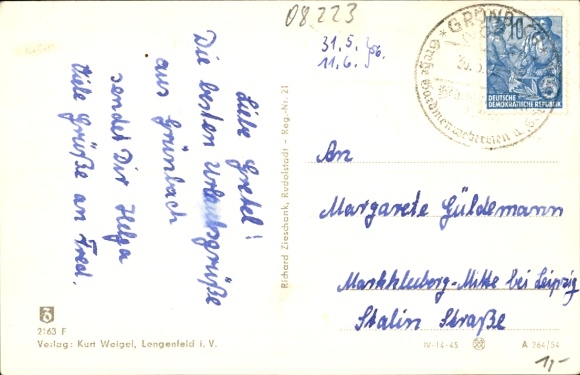 08.223
31.5.56.
11.6.
Liebe Gretel!
Die besten Urlaubsgrüße
aus Grünbach
sendet Dir Helga
Viele Grüße an Fred.
Richard Zieschank, Rudolstadt - Reg.-Nr. 21
GRÜNBACH
10
DEUTSCHE
DEMOKRATISCHE REPUBLIK
An
Margarete Güldemann
Markkleeberg-Mitte bei Leipzig
Stalin Straße
2163 F
Verlag: Kurt Weigel, Lengenfeld i. V.
IV-14-45
A 264/54
1,-